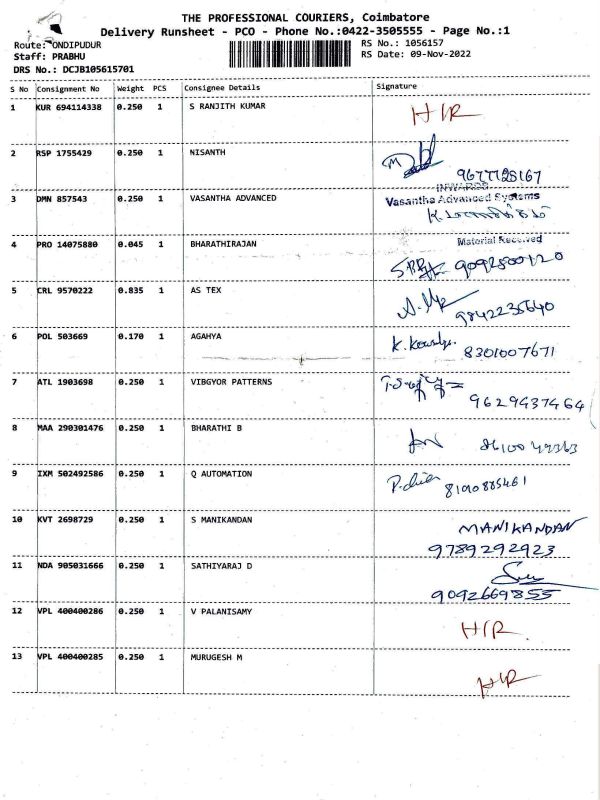 THE PROFESSIONAL COURIERS, Coimbatore
Delivery Runsheet - PCO - Phone No.:0422-3505555 - Page No.:1
Route: ONDIPUDUR RS No.: 1056157
Staff: PRABHU RS Date: 09-Nov-2022
DRS No.: DCJB105615701
S No Consignment No Weight PCS Consignee Details Signature
1 KUR 694114338 0.250 1 S RANJITH KUMAR H/R
2 RSP 1755429 0.250 1 NISANTH
9677128167
INWARDS
3 DMN 857543 0.250 1 VASANTHA ADVANCED Vasantha Advanced Systems
4 PRO 14075880 0.045 1 BHARATHIRAJAN Material Received
5 CRL 9570222 0.835 1 AS TEX
9842235640
6 POL 503669 0.170 1 AGAHYA
8301007671
7 ATL 1903698 0.250 1 VIBGYOR PATTERNS
9629437464
8 MAA 290301476 0.250 1 BHARATHI B
9 IXM 502492586 0.250 1 Q AUTOMATION
8190885461
10 KVT 2698729 0.250 1 S MANIKANDAN MANIKANDAN
9789292923
11 NDA 905031666 0.250 1 SATHIYARAJ D
9092669855
12 VPL 400400286 0.250 1 V PALANISAMY H/R
13 VPL 400400285 0.250 1 MURUGESH M H/R